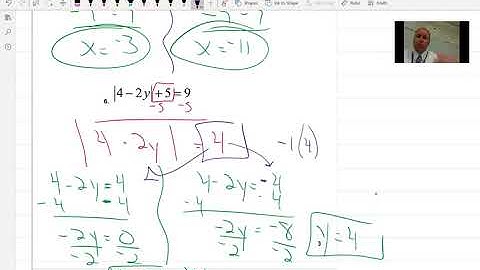 -7 -7 -7 -7
x = -3 x = -11
6. |4 - 2y| + 5 = 9
-5 -5
|4 - 2y| = 4 -1(4)
4 - 2y = 4 4 - 2y = -4
-4 -4 -4 -4
-2y = 0 -2y = -8 y = 4
-2 -2 -2 -2